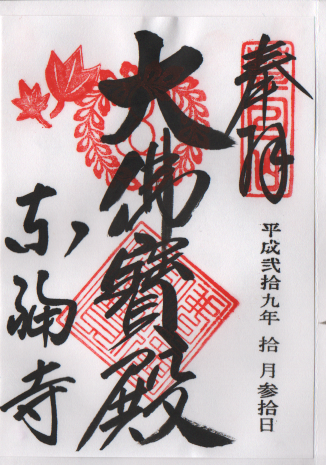 奉拝
平成弐拾九年 拾月参拾日
大佛寳殿
東福寺